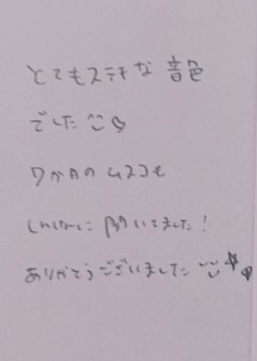 とてもステキな音色
でした♡
7か月のムスコも
聞いてました!
ありがとうございました